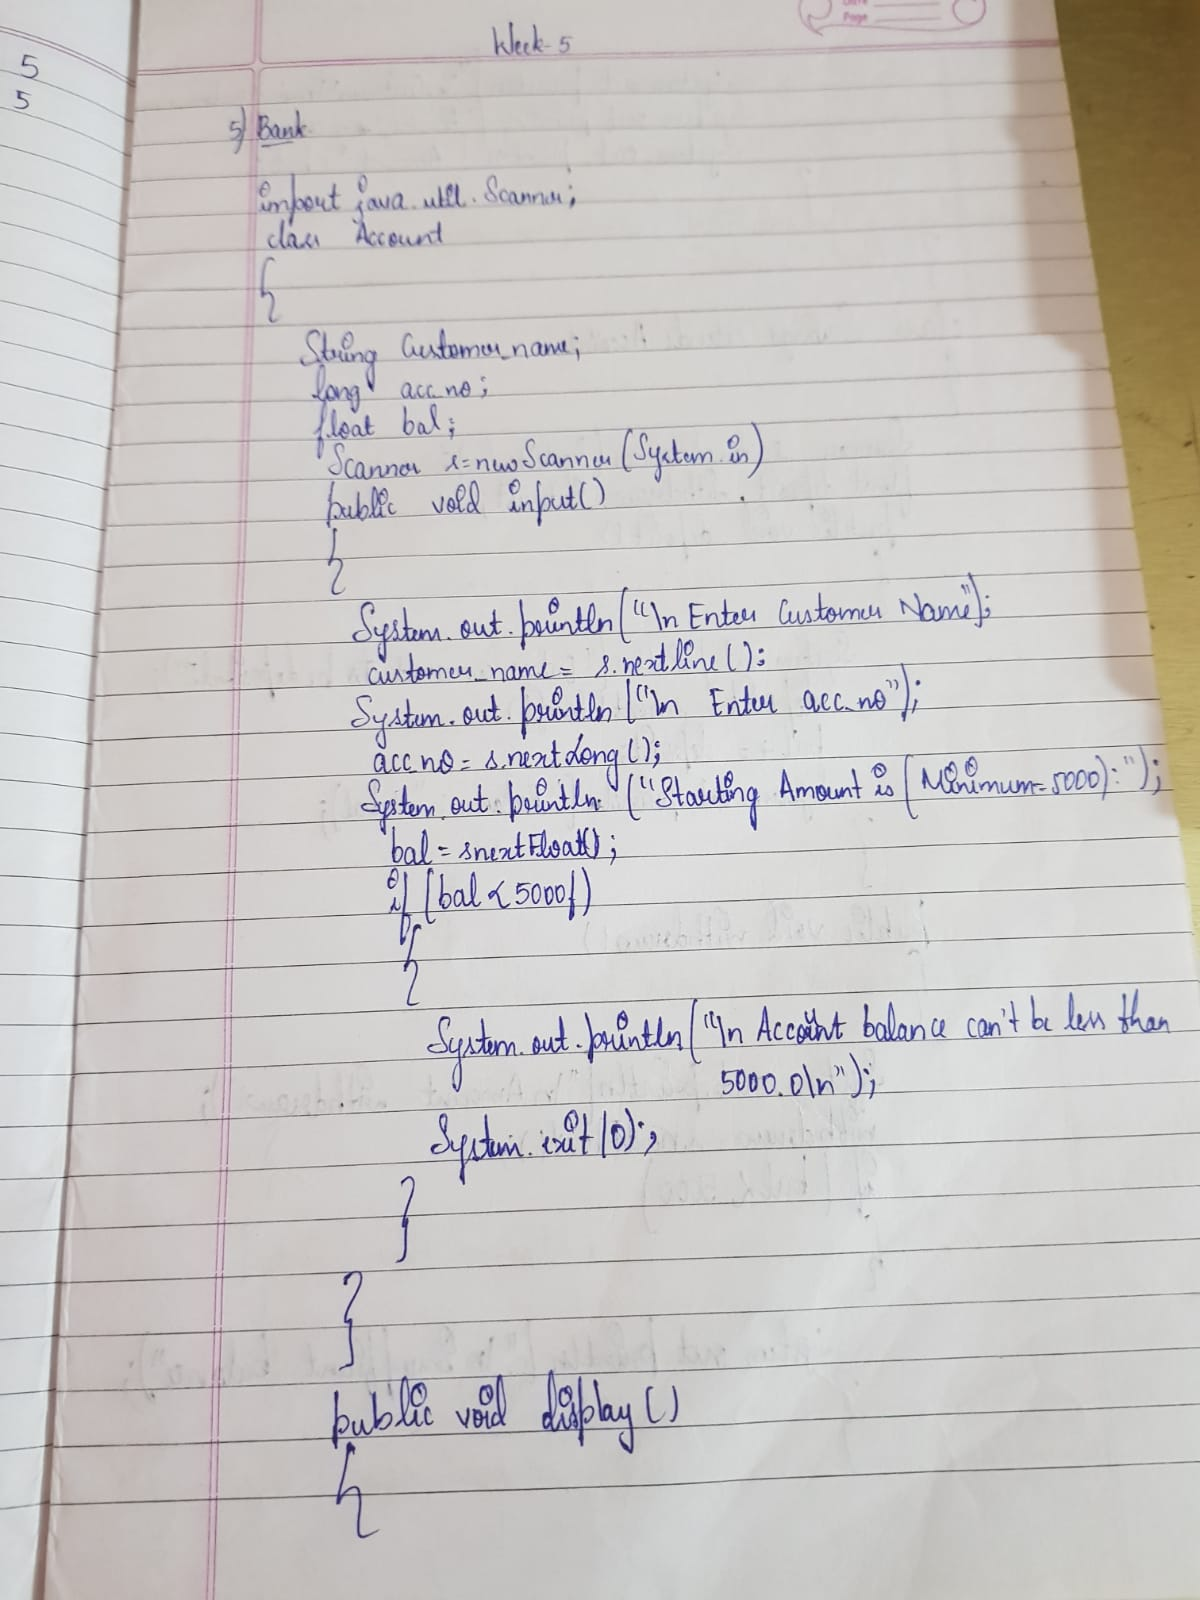 5
5
Page
Week-5
5) Bank
import java.util.Scanner;
class Account
{
String Customer_name;
long acc_no;
float bal;
Scanner s=new Scanner(System.in)
public void input()
{
System.out.println("\n Enter Customer Name");
customer_name = s.nextline();
System.out.println("\n Enter acc_no");
acc_no = s.nextLong();
System.out.println ("Starting Amount is (Minimum=5000):");
bal = s.nextFloat();
if (bal < 5000f)
{
System.out.println("\n Account balance can't be less than
5000.0\n");
System.exit(0);
}
}
public void display()
{